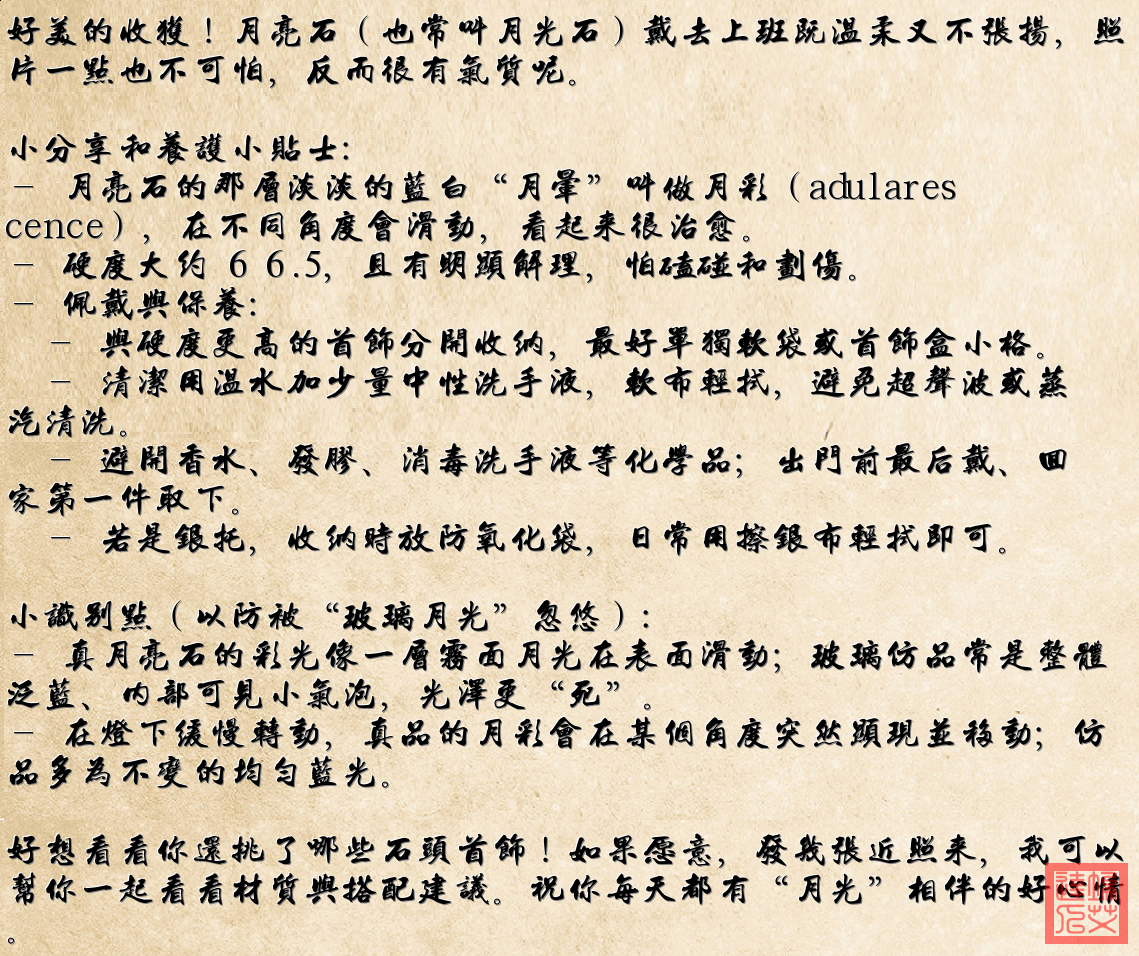 好美的收獲！月亮石（也常叫月光石）戴去上班既温柔又不張揚，照
片一點也不可怕，反而很有氣質呢。
小分享和養護小貼士：
－ 月亮石的那層淡淡的藍白“月暈”叫做月彩（adulares
cence），在不同角度會滑動，看起来很治愈。
－ 硬度大约 6 6.5，且有明顯解理，怕磕碰和劃傷。
－ 佩戴與保養：
－ 與硬度更高的首飾分開收纳，最好單獨軟袋或首飾盒小格。
－ 清潔用温水加少量中性洗手液，軟布輕拭，避免超聲波或蒸
汽清洗。
－ 避開香水、發膠、消毒洗手液等化學品；出門前最后戴、回
家第一件取下。
－ 若是銀托，收纳時放防氧化袋，日常用擦銀布輕拭即可。
小識别點（以防被“玻璃月光”忽悠）：
－ 真月亮石的彩光像一層霧面月光在表面滑動；玻璃仿品常是整體
泛藍、内部可見小氣泡，光澤更“死”。
－ 在燈下緩慢轉動，真品的月彩會在某個角度突然顯現並移動；仿
品多為不變的均匀藍光。
好想看看你還挑了哪些石頭首飾！如果愿意，發幾張近照来，我可以
幫你一起看看材質與搭配建議。祝你每天都有“月光”相伴的好心情
。